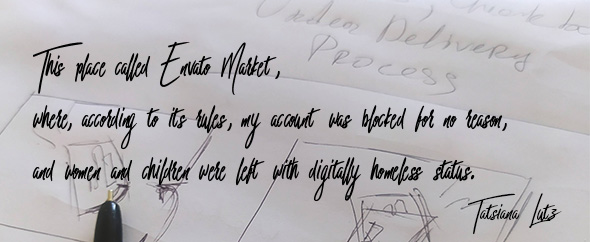 Order Delivery
Process
This place called Envato Market,
where, according to its rules, my account was blocked for no reason,
and women and children were left with digitally homeless status.
Tatsiana Lutz